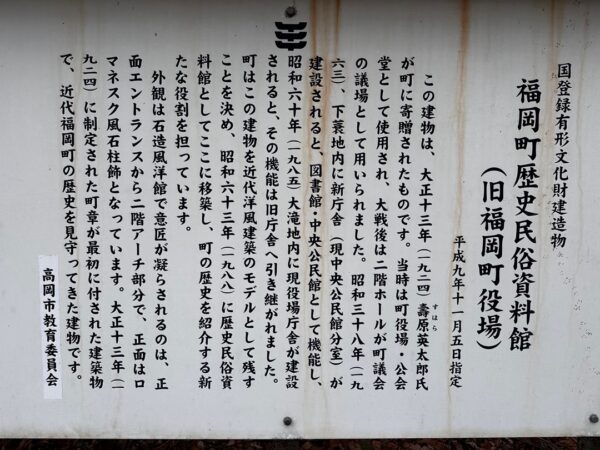 国登録有形文化財建造物
福岡町歴史民俗資料館
(旧福岡町役場)
平成九年十一月五日指定
この建物は、大正十三年(一九二四)壽原英太郎氏
すはら
が町に寄贈されたものです。当時は町役場・公会
堂として使用され、大戦後は二階ホールが町議会
の議場として用いられました。昭和三十八年(一九
六三)、下蓑地内に新庁舎(現中央公民館分室)が
建設されると、図書館・中央公民館として機能し、
昭和六十年(一九八五)大滝地内に現役場庁舎が建設
されると、その機能は旧庁舎へ引き継がれました。
町はこの建物を近代洋風建築のモデルとして残す
ことを決め、昭和六十三年(一九八八)に歴史民俗資
料館としてここに移築し、町の歴史を紹介する新
たな役割を担っています。
外観は石造風洋館で意匠が凝らされるのは、正
面エントランスから二階アーチ部分で、正面はロ
マネスク風石柱飾となっています。大正十三年(一
九二四)に制定された町章が最初に付された建築物
で、近代福岡町の歴史を見守ってきた建物です。
高岡市教育委員会